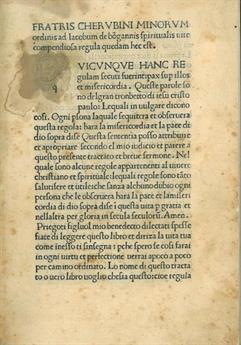 FRATRIS CHERVBINI MINORVM
ordinis ad Iacobum de bōgannis spiritualis uite
compendiosa regula quedam hec est.
VICVNQVE HANC RE
gulam secuti fuerint: pax sup illos
et misericordia. Queste parole so
no del gran trombetto di iesu cristo
paulo: Lequali in uulgare dicono
cosi. Ogni psona laquale sequitera et obseruera
questa regola: hara la misericordia et la pace di
dio sopra dise Questa sententia posso attribuire
et apropriare secondo el mio iudicio et parere a
questo presente tractato et breue sermone. Nel
quale sono alcune regole appartenenti a uiuere
christiano et spirituale: lequali regole sono tāto
salutifere et utile che sanza alchuno dubio ogni
persona che le obseruera hara la pace et la miseri
cordia di dio sopra dise i questa uita p gratia et
nellaltra per gloria in secula seculorū. Amen.
Priegoti figliuol mio benedecto dilectati spesse
fiate di leggere questo libro et deriza la uita tua
come inesso ti sinsegna: pche spero se cosi farai
in ogni uirtu et perfectione uerrai apoco a poco
per camino ordinato. Lo nome di questo tracta
to o uero libro uoglio che sia questo: cioe regula